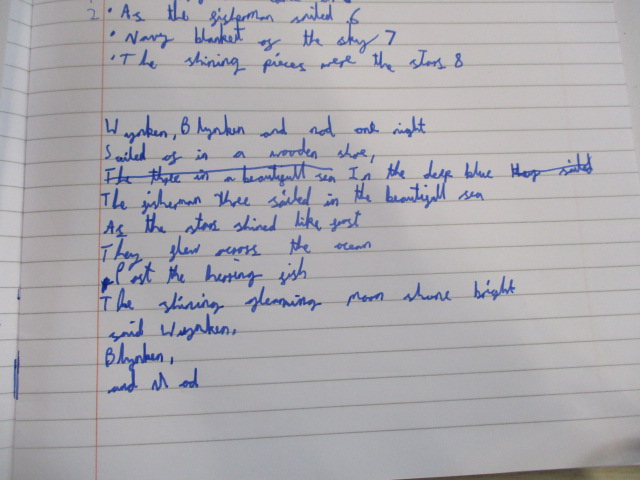 2 • As the fisherman sailed 6
• Navy blanket of the sky 7
• The shining pieces were the stars 8
Wynken, Blynken and nod one night
Sailed of in a wooden shoe,
The three in a beautifull sea In the deep blue they sailed
The fisherman three sailed in the beautifull sea
As the stars shined like just
They flew across the ocean
Past the herring fish
The shining gleaming moon shone bright
said Wynken,
Blynken,
and Nod